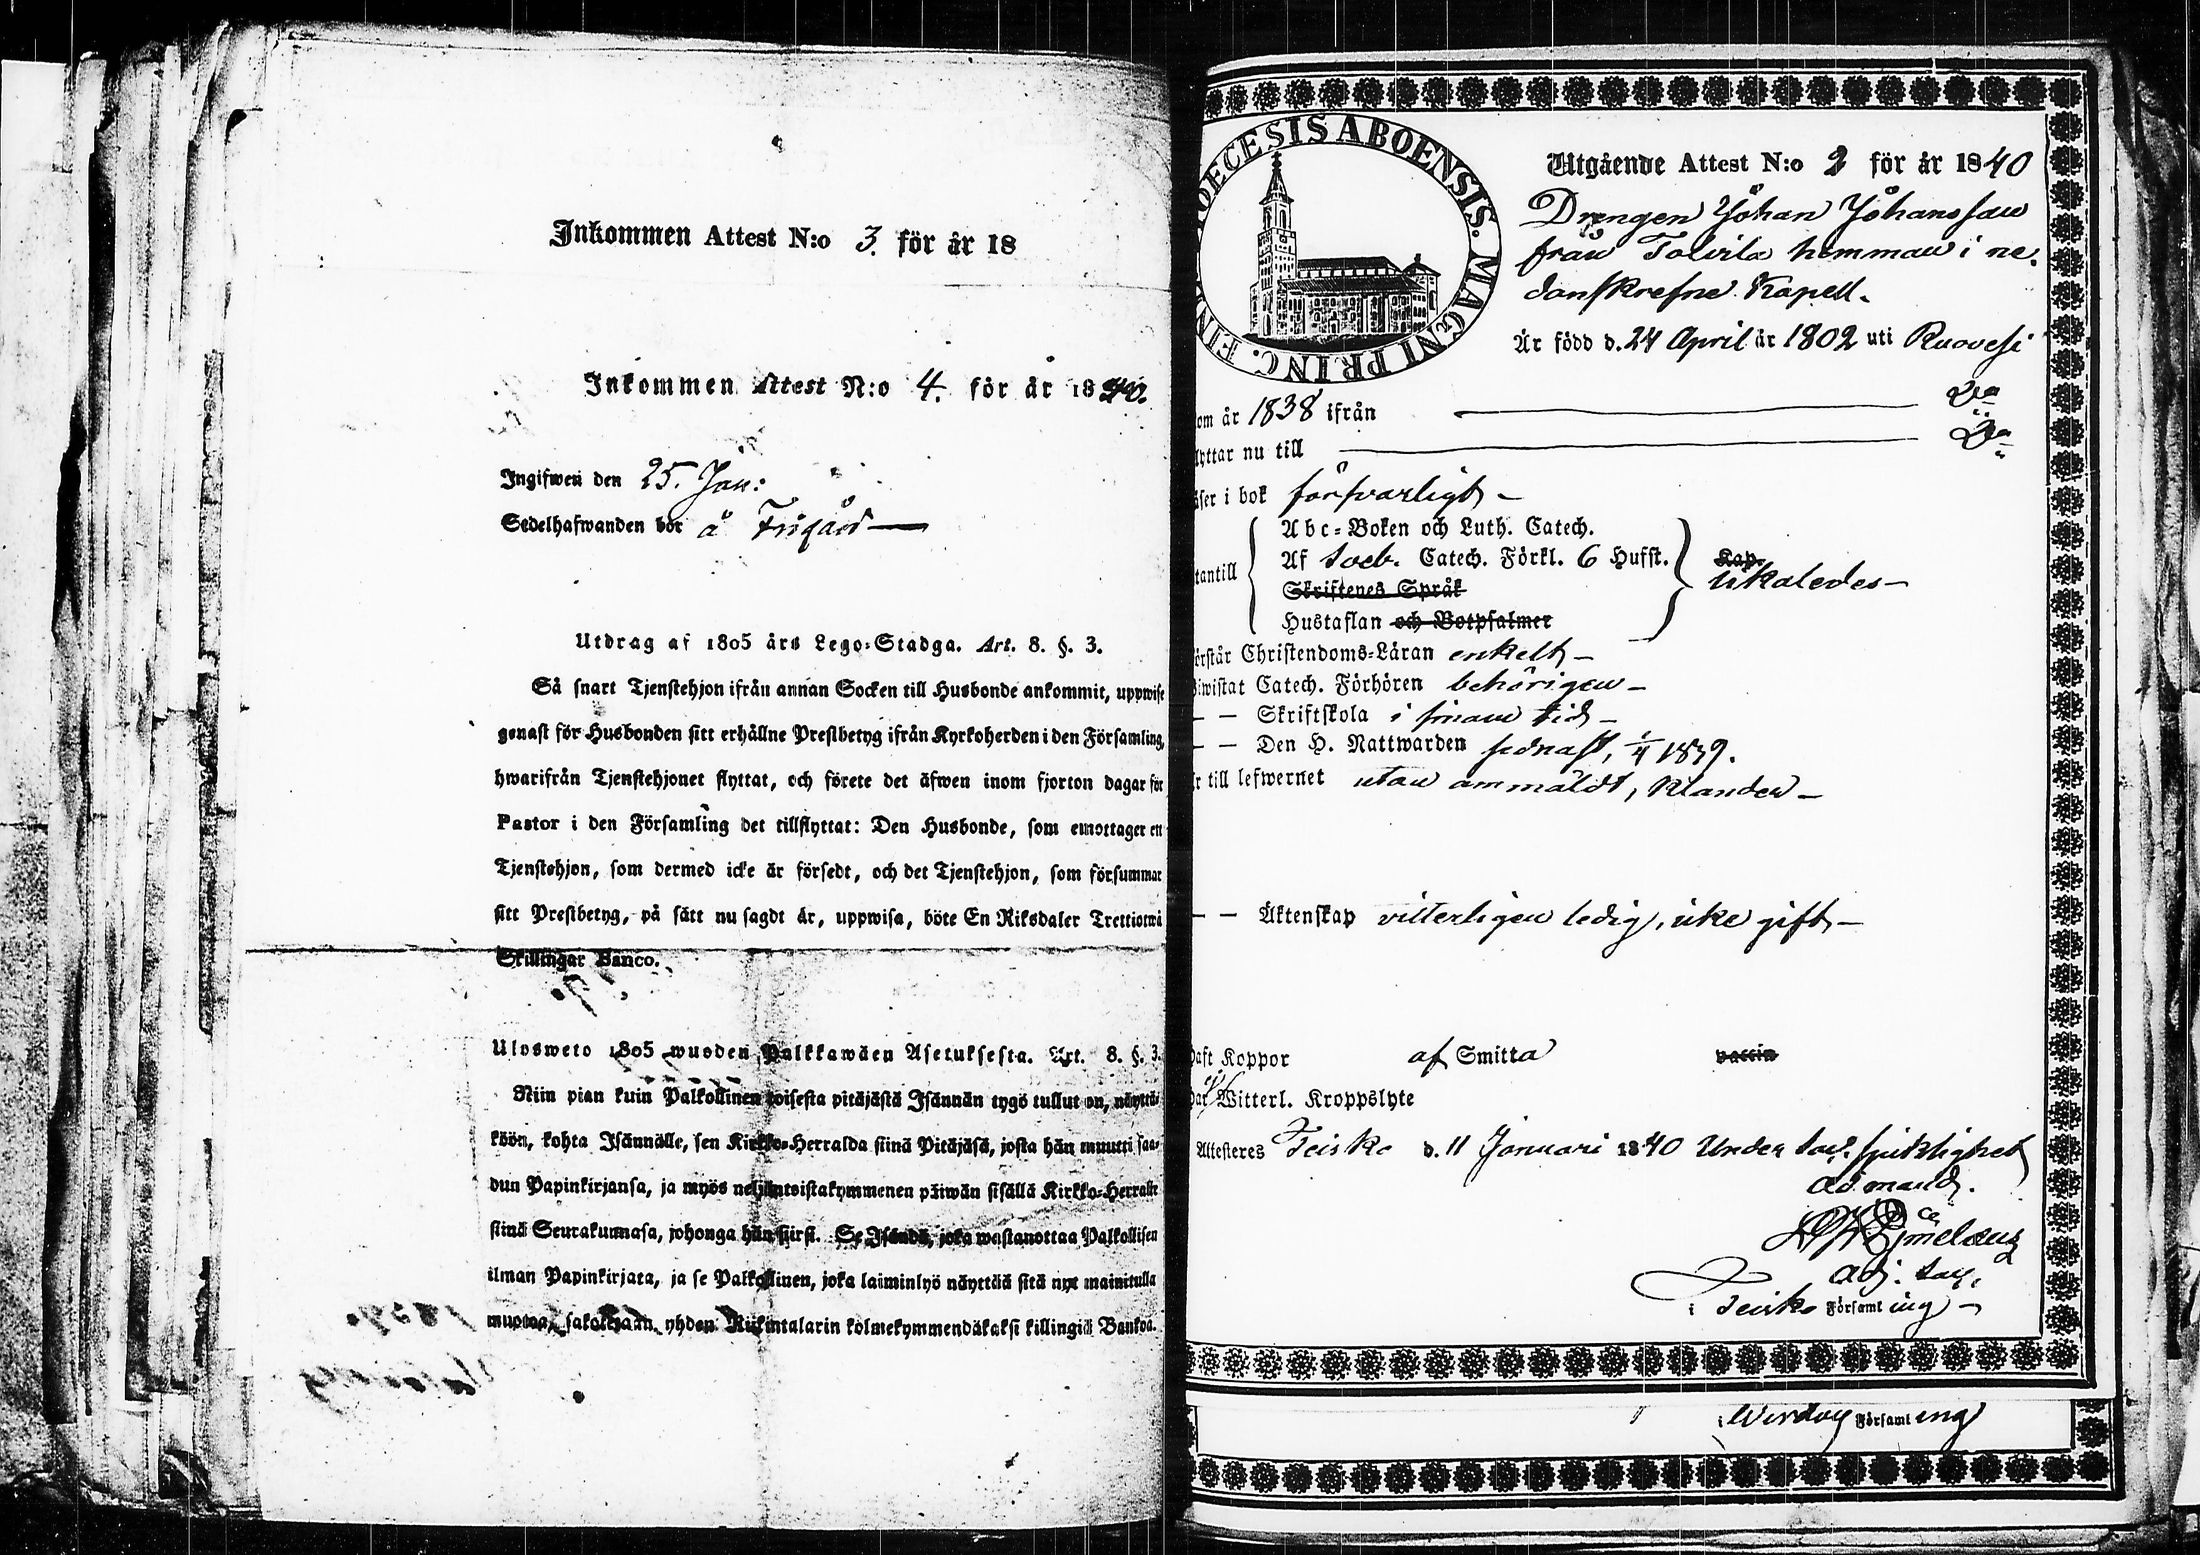 Inkommen Attest N:o 3. för år 18
Inkommen Attest N:o 4. för år 1840.
Ingifwen den 25. Jan:
Sedelhafwanden bor å Frigård
Utdrag af 1805 års Lego-Stadga. Art. 8. §. 3.
Så snart Tjenstehjon ifrån annan Socken till Husbonde ankommit, uppwise
genast för Husbonden sitt erhållne Prestbetyg ifrån Kyrkoherden i den Församling,
hwarifrån Tjenstehjonet flyttat, och förete det äfwen inom fjorton dagar för
Pastor i den Församling det tillflyttat: Den Husbonde, som emottager en
Tjenstehjon, som dermed icke är försedt, och det Tjenstehjon, som försummar
sitt Prestbetyg, på sätt nu sagdt är, uppwisa, böte En Riksdaler Trettiotwå
Skillingar Banco.
Ulosweto 1805 wuoden Palkkawäen Asetuksesta. Art. 8. §. 3.
Niin pian kuin Palkollinen toisesta pitäjästä Isännän tygö tullut on, näyttä-
köön, kohta Isännälle, sen Kirkko-Herralda siinä Pitäjäsä, josta hän muutti saa-
dun Papinkirjansa, ja myös neljäntoistakymmenen päiwän sisällä Kirkko-Herralle
siinä Seurakunnasa, johonga hän siirsi. Se Isändä, joka wastanottaa Palkollisen
ilman Papinkirjata, ja se Palkollinen, joka laiminlyö näyttää sitä nyt mainitulla
muotoa, sakotetaan yhden Riikintalarin kolmekymmendäkaksi killingiä Bankoa.
DIOECESIS ABOENSIS. MAGNI PRINC. FIN
Utgående Attest N:o 2 för år 1840
Drengen Johan Johansson
från Tolvila hemman i ne-
danskrefne Kapell.
Är född d. 24 April år 1802 uti Ruovesi
om år 1838 ifrån Do
lyttar nu till Do
äser i bok försvarligt
Abc-Boken och Luth. Catech.
Af Sveb. Catech. Förkl. 6 Hufst.
tantill
Skriftenes Språk
Hustaflan och Botpsalmer
Kap.
likaledes
örstår Christendoms-Läran enkelt
Biwistat Catech. Förhören behörigen
— — Skriftskola i sinom tid
— — Den H. Nattwarden sednast, 1839.
r till lefwernet utan anmäldt, klander
— — Äktenskap vitterligen ledig, icke gift
Haft Koppor af Smitta vaccin
Har ej Witterl. Kroppslyte
Attesteres Teisko d. 11 Januari 1840 Under
i Teisko Församling
i Wirdoy Församling